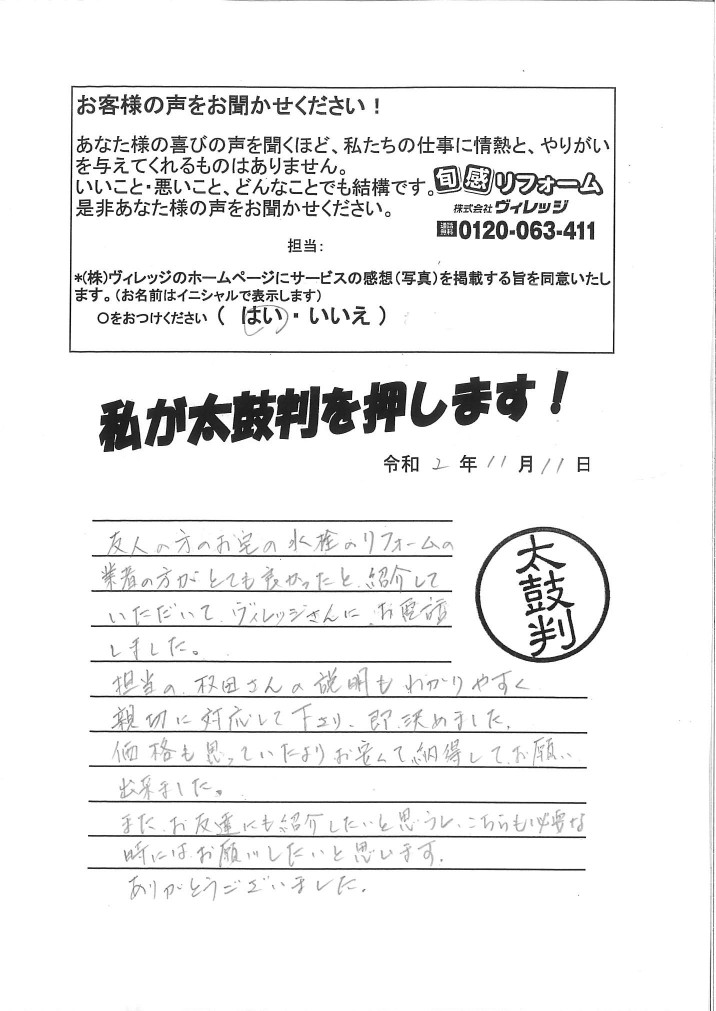 お客様の声をお聞かせください！
あなた様の喜びの声を聞くほど、私たちの仕事に情熱と、やりがい
を与えてくれるものはありません。
いいこと・悪いこと、どんなことでも結構です。
是非あなた様の声をお聞かせください。
旬感リフォーム
株式会社ヴィレッジ
通話無料 0120-063-411
担当：
*(株)ヴィレッジのホームページにサービスの感想(写真)を掲載する旨を同意いたし
ます。(お名前はイニシャルで表示します)
○をおつけください ( はい・いいえ )
私が太鼓判を押します！
令和 2 年 11 月 11 日
太鼓判
友人の方のお宅の水栓のリフォームの
業者の方がとても良かったと、紹介して
いただいて、ヴィレッジさんに、お電話
しました。
担当の、田さんの説明もわかりやすく
親切に対応して下さり、即決めました。
価格も思っていたよりお安くて納得して、お願い
出来ました。
また、お友達にも紹介したいと思うし、こちらも必要な
時にはお願いしたいと思います。
ありがとうございました。